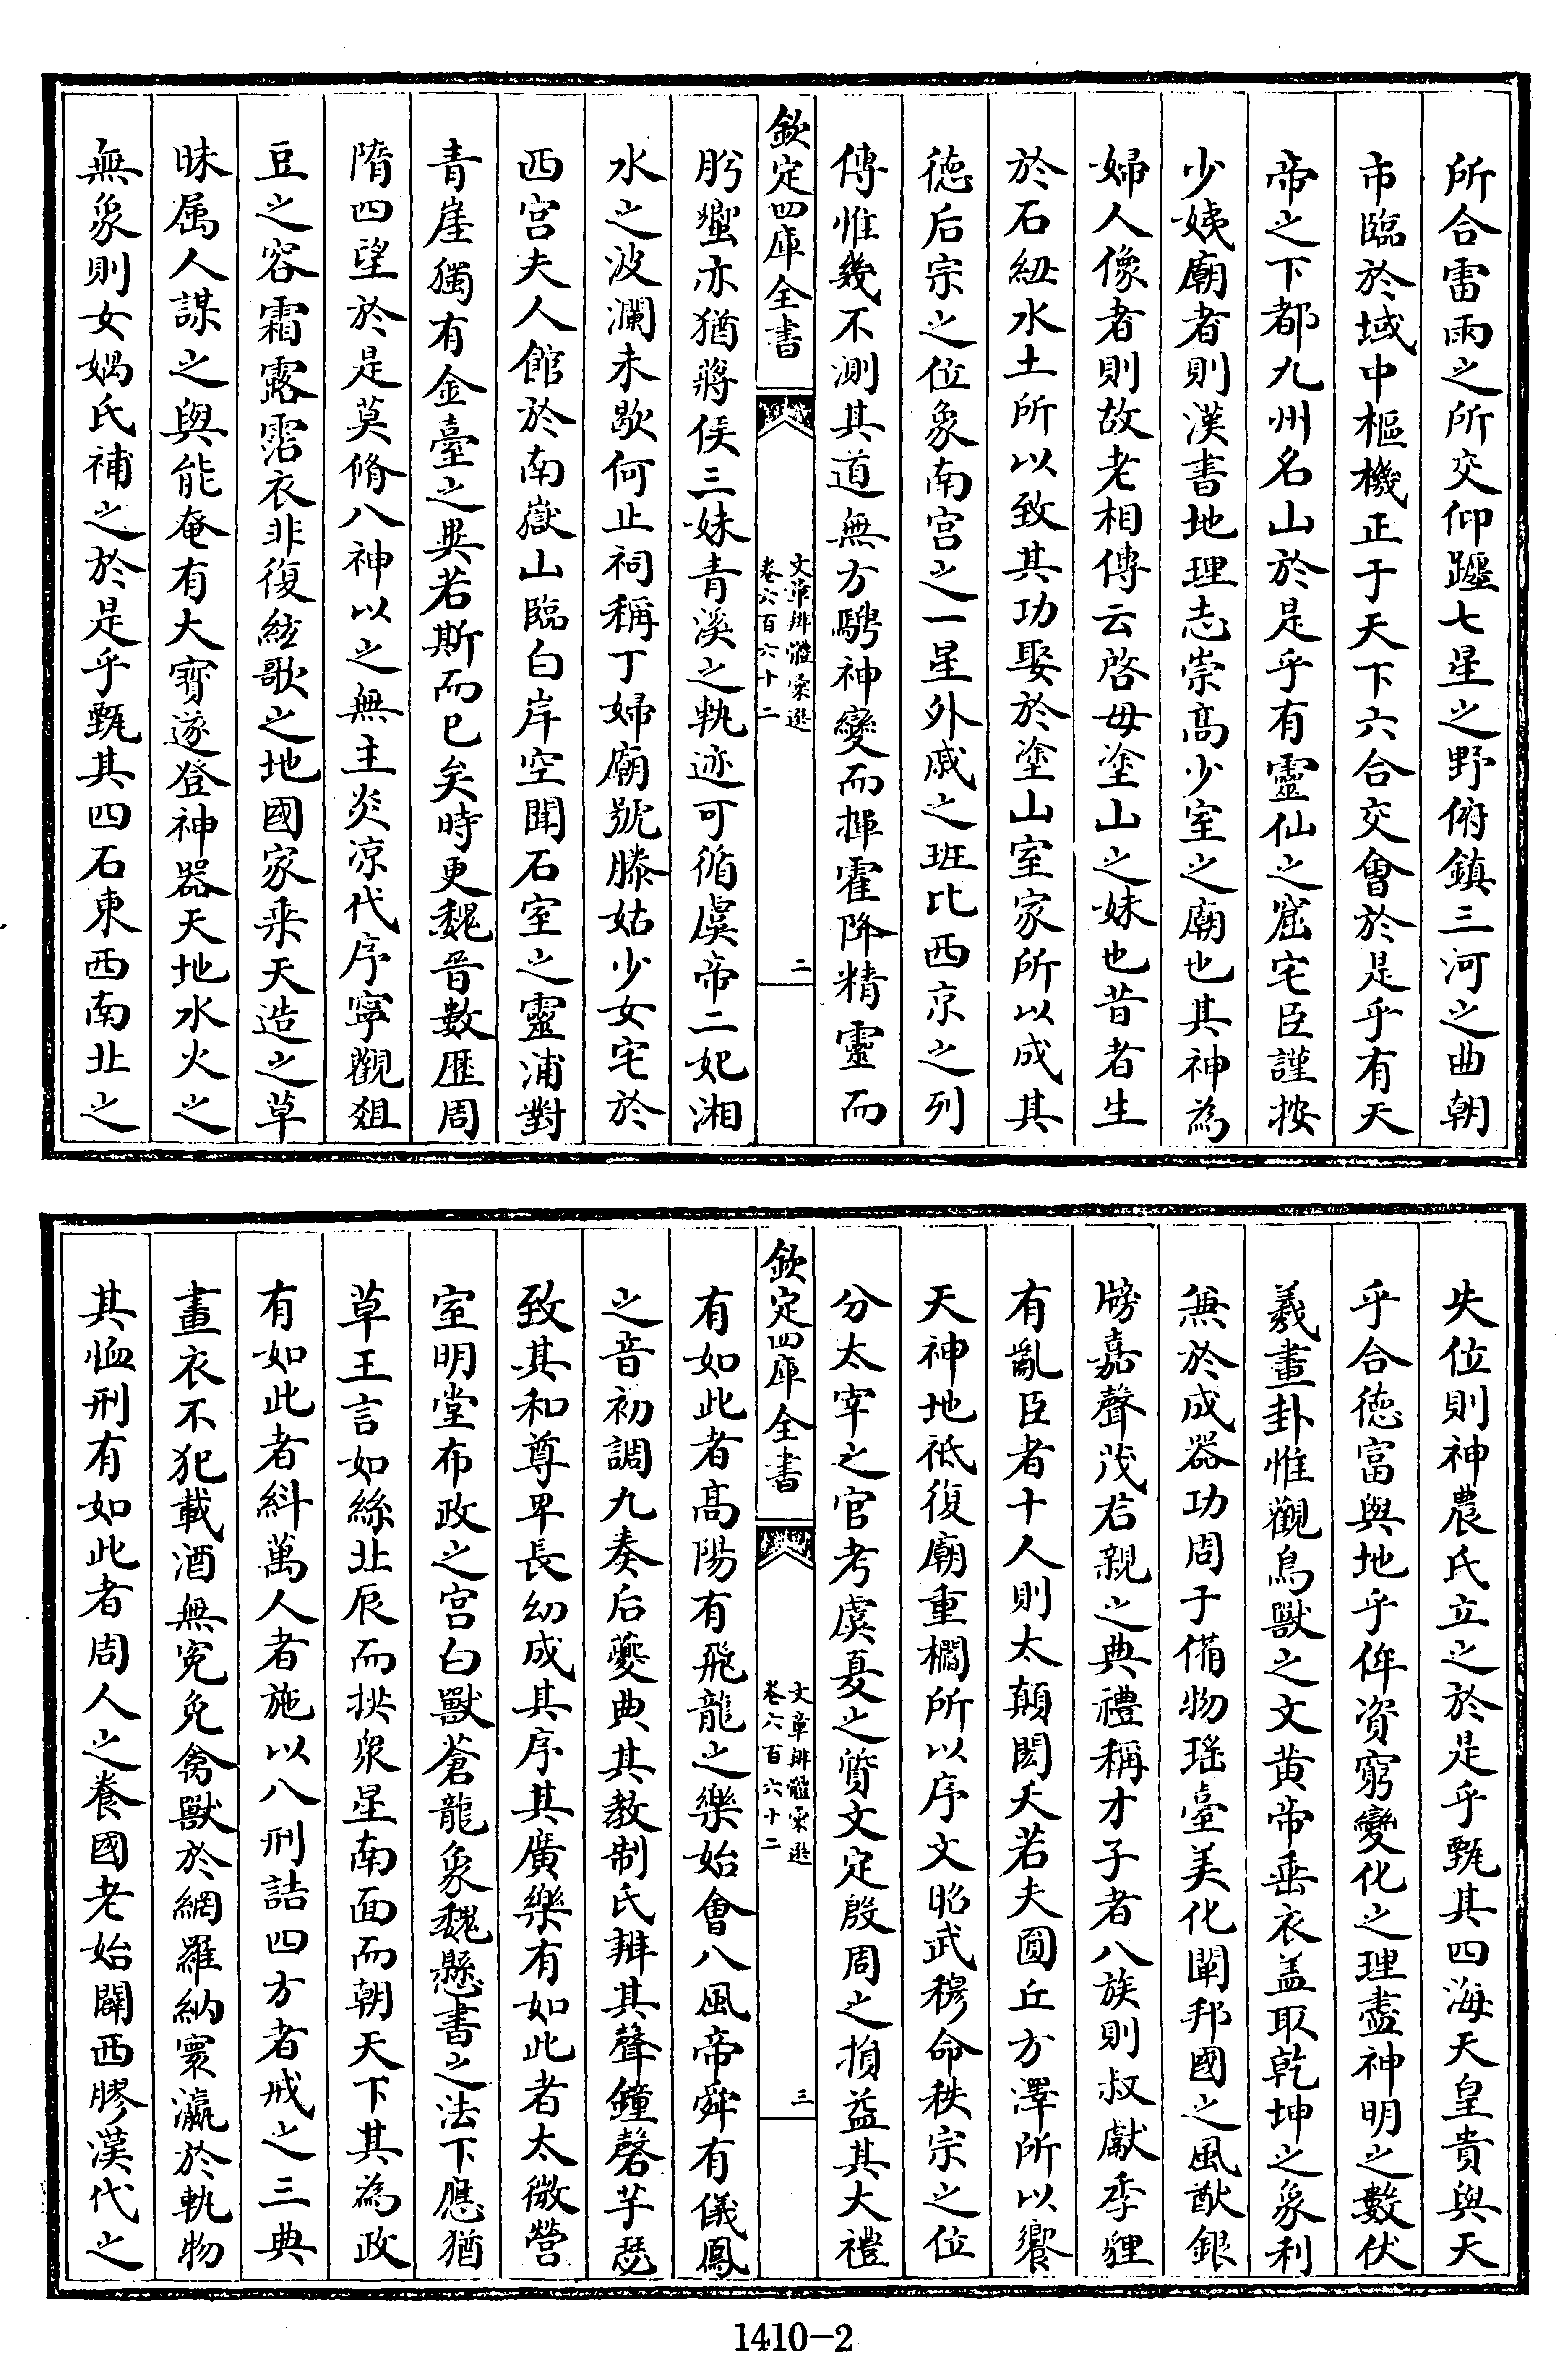 所合雷雨之所交仰躔七星之野俯鎮三河之曲朝
市臨於域中樞機正于天下六合交會於是乎有天
帝之下都九州名山於是乎有靈仙之窟宅臣謹按
少姨廟者則漢書地理志崇高少室之廟也其神為
婦人像者則故老相傳云啓母塗山之妹也昔者生
於石紐水土所以致其功娶於塗山室家所以成其
德后宗之位象南宫之一星外戚之班比西京之列
傳惟幾不測其道無方騁神變而揮霍降精靈而
欽定四庫全書
文章辨體彙選
卷六百六十二
二
肹蠁亦猶蔣侯三妹青溪之軌迹可循虞帝二妃湘
水之波瀾未歇何止祠稱丁婦廟號滕姑少女宅於
西宫夫人館於南嶽山臨白岸空聞石室之靈浦對
青崖獨有金臺之異若斯而已矣時更魏晉數歷周
隋四望於是莫脩八神以之無主炎凉代序寧觀俎
豆之容霜露霑衣非復絃歌之地國家乘天造之草
昧屬人謀之與能奄有大寶遂登神器天地水火之
無象則女媧氏補之於是乎甄其四石東西南北之
失位則神農氏立之於是乎甄其四海天皇貴與天
乎合德富與地乎侔資窮變化之理盡神明之數伏
羲畫卦惟觀鳥獸之文黄帝垂衣盖取乾坤之象利
無於成器功周于備物瑶臺美化闡邦國之風猷銀
牓嘉聲茂君親之典禮稱才子者八族則叔獻季貍
有亂臣者十人則太顛閎夭若夫圓丘方澤所以饗
天神地祇復廟重櫩所以序文昭武穆命秩宗之位
分太宰之官考虞夏之質文定殷周之損益其大禮
欽定四庫全書
文章辨體彙選
卷六百六十二
三
有如此者高陽有飛龍之樂始會八風帝舜有儀鳳
之音初調九奏后夔典其教制氏辨其聲鐘磬竽瑟
致其和尊卑長幼成其序其廣樂有如此者太微營
室明堂布政之宫白獸蒼龍象魏懸書之法下應猶
草王言如絲北辰而拱衆星南面而朝天下其為政
有如此者糾萬人者施以八刑詰四方者戒之三典
畫衣不犯載酒無寃免禽獸於網羅納寰瀛於軌物
其恤刑有如此者周人之養國老始闢西膠漢代之
1410-2